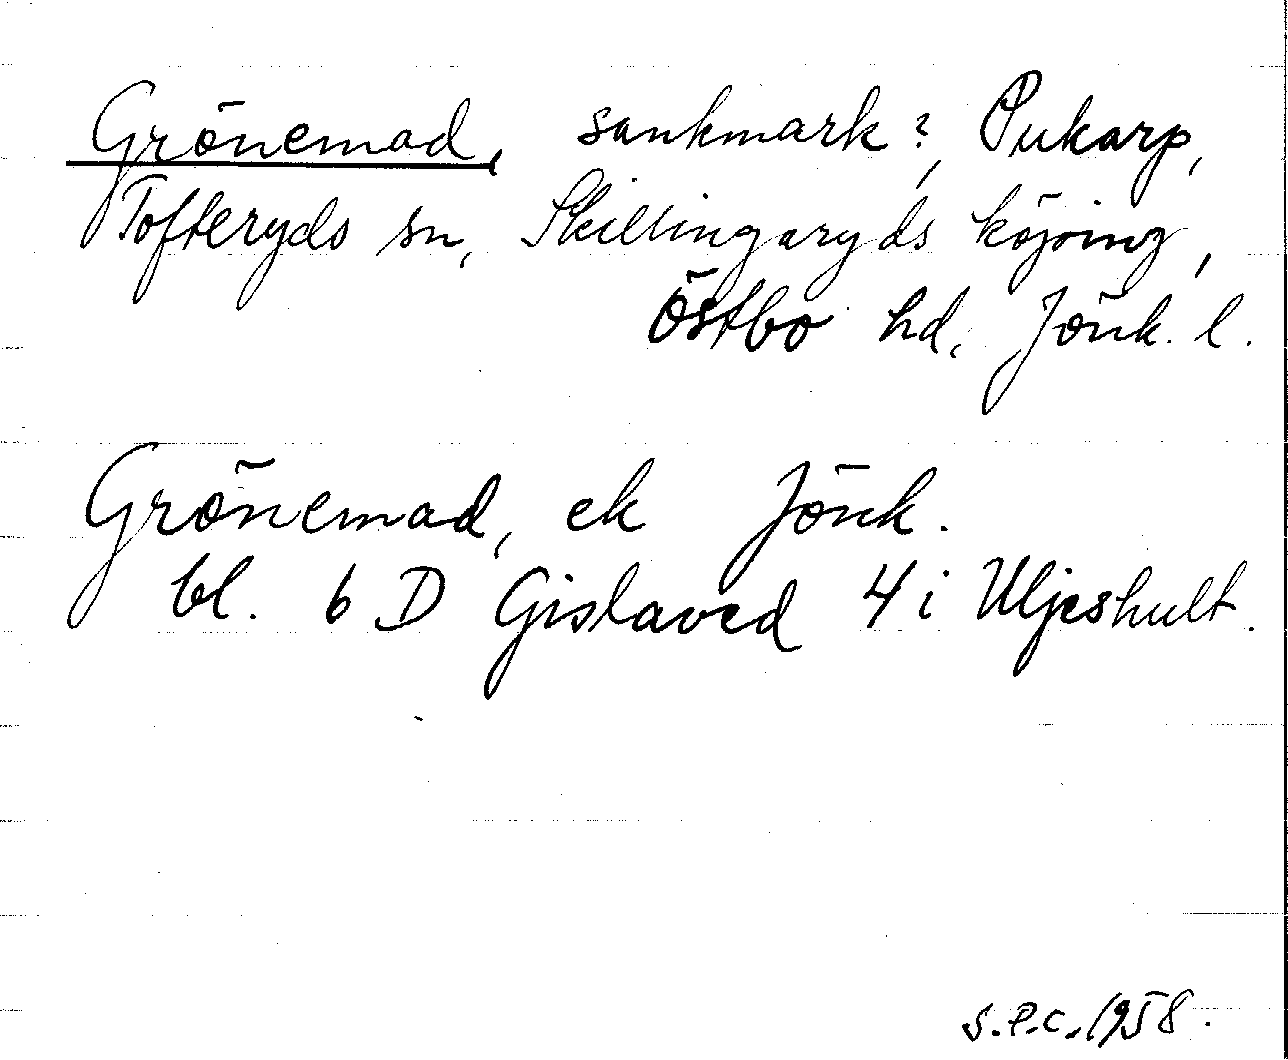 Grönemad, sankmark?, Pukarp,
Tofteryds sn, Skillingaryds köping,
Östbo hd, Jönk. l.
Grönemad, ek Jönk.
bl. 6 D Gislaved 4 i Uljeshult.
S.P.C. 1958.